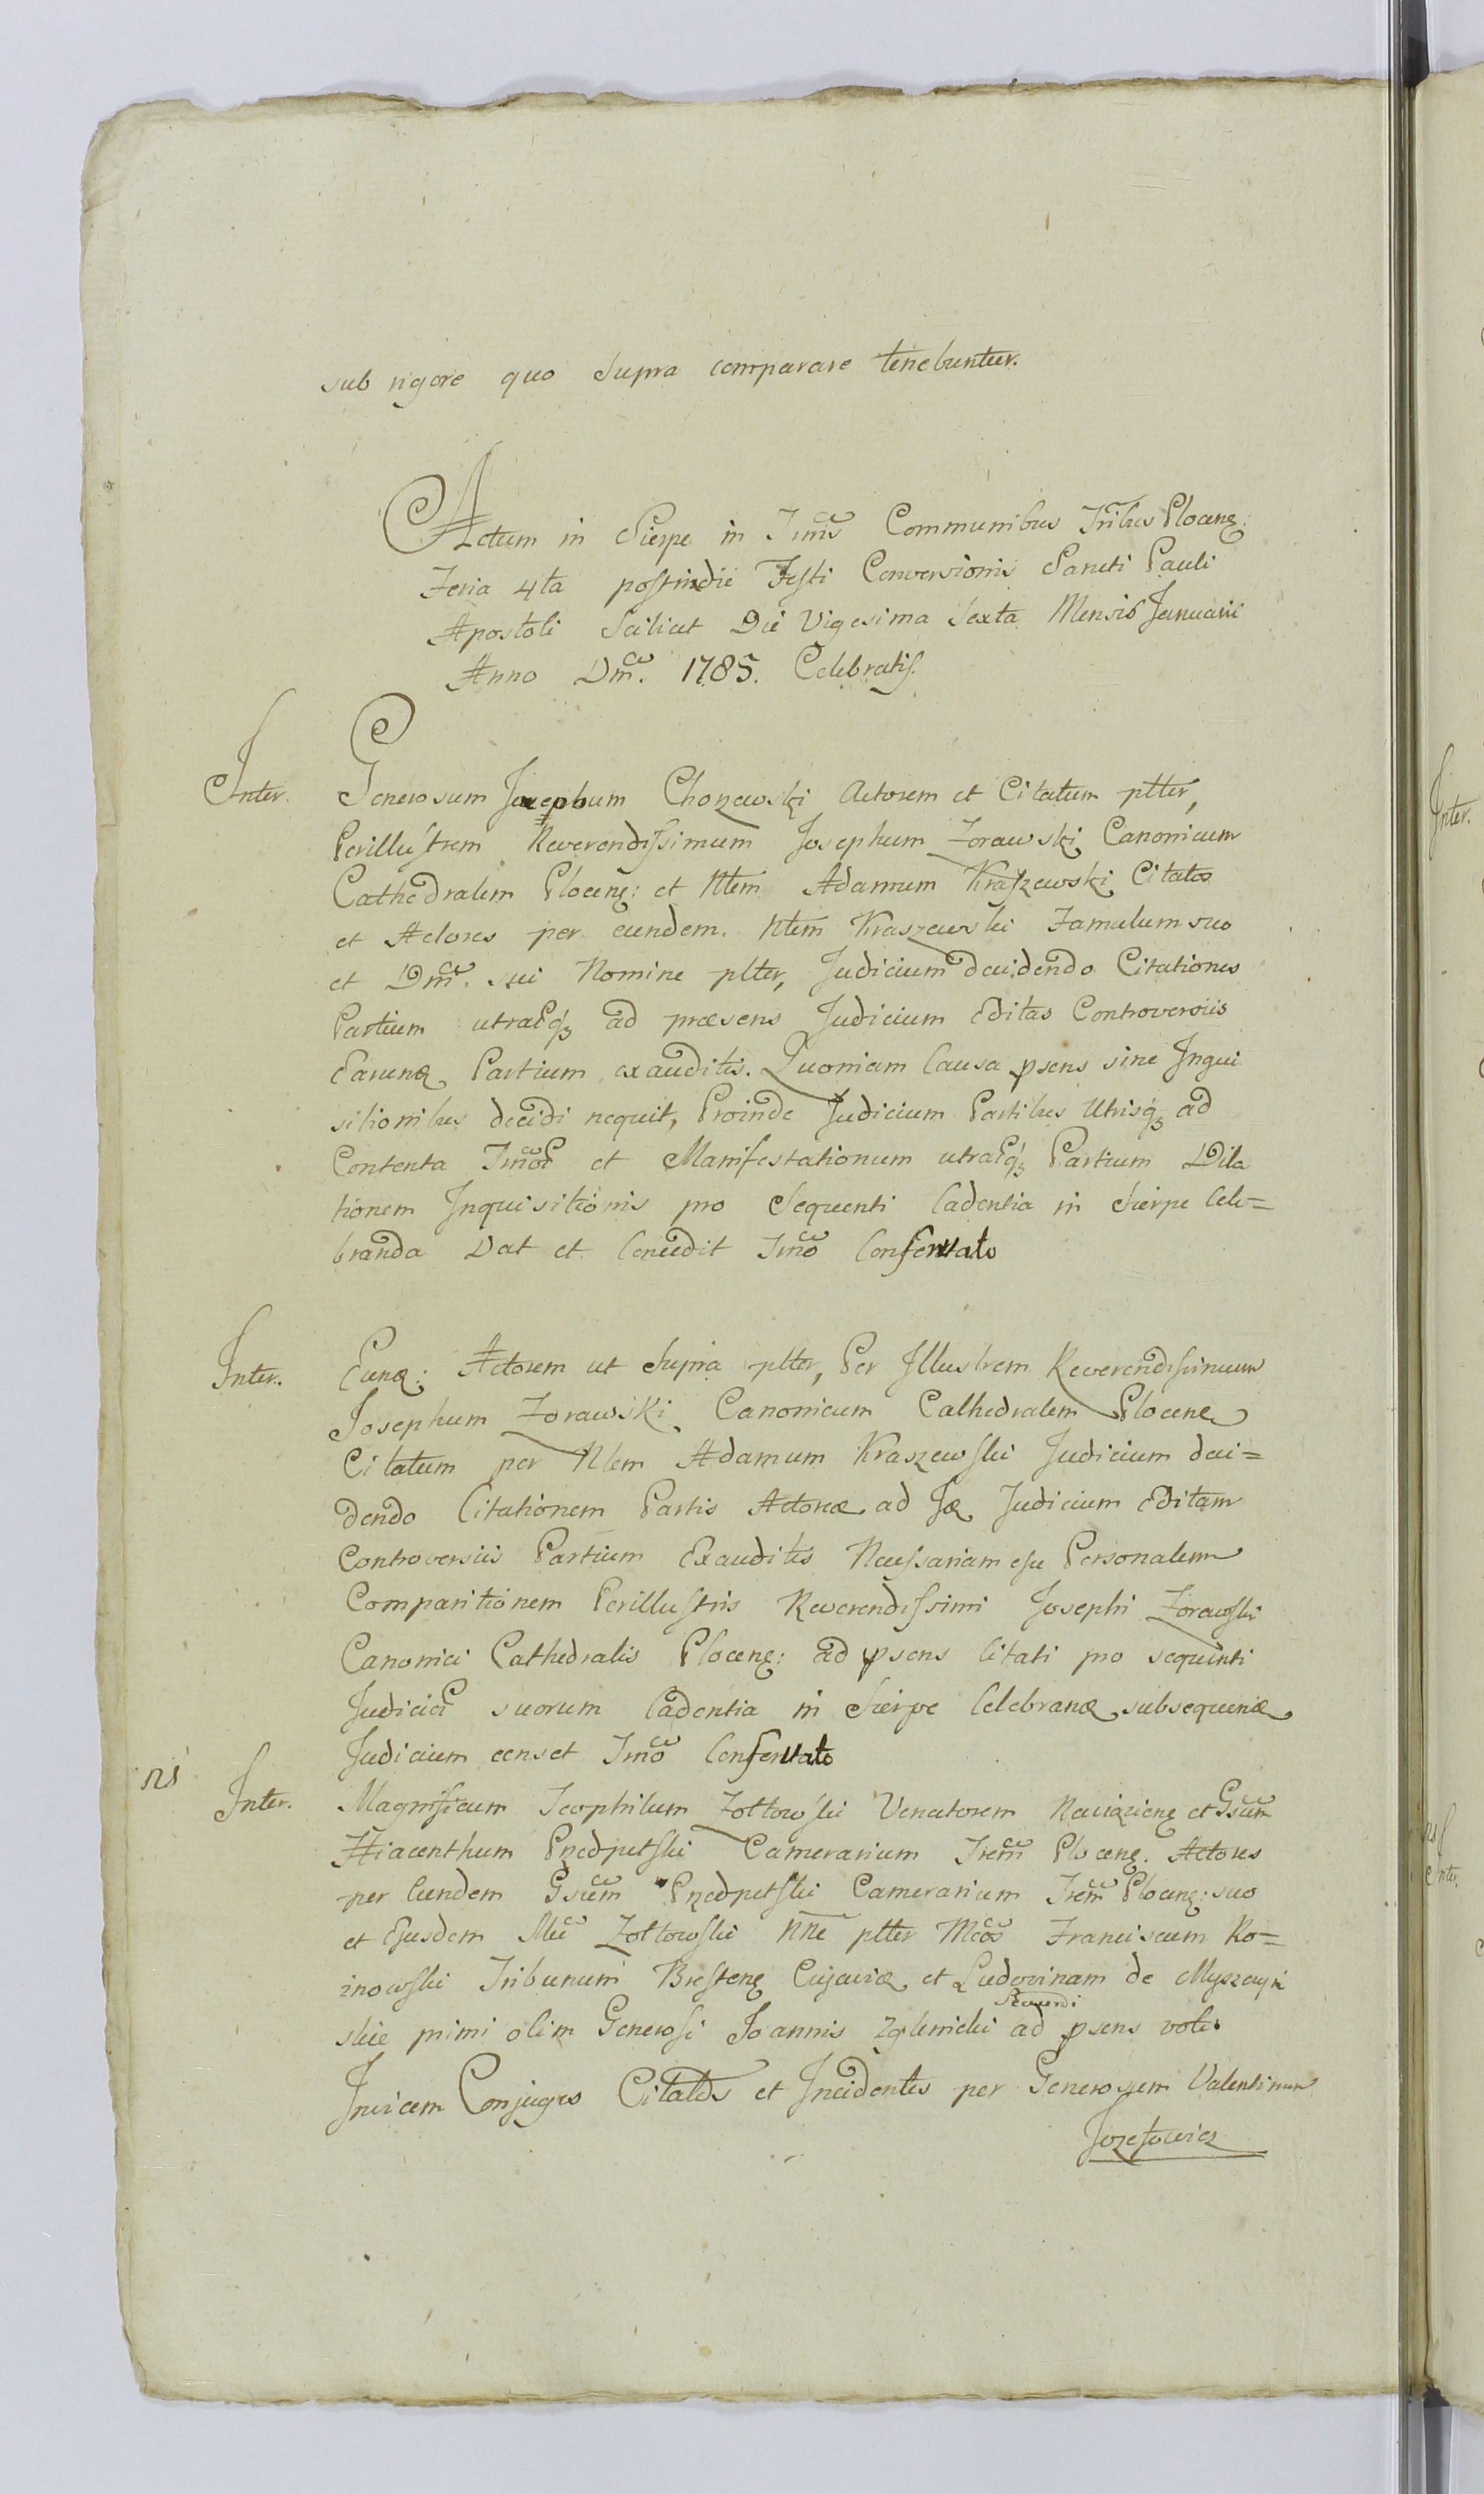 sub rigore quo supra comparare tenebuntur.
Actum in Sierpc in Tmis Communibus Tribus Plocen:
Feria 4ta postridie Festi Conversionis Sancti Pauli
Apostoli Scilicet Die Vigesima Sexta Mensis Januarii
Anno Dni. 1785. Celebratis.
Inter. Generosum Josephum Chonzewski Actorem et Citatum plter,
Perillustrem Reverendissimum Josephum Zorawski Canonicum
Cathedralem Plocen: et Nlem Adamum Kraszewski Citatos
et Actores per eundem. Nlem Kraszewski Famulum suo
et Dni. sui Nomine plter, Judicium decidendo Citationes
Partium utrarq3 ad præsens Judicium Editas Controversiis
Earund Partium exauditis. Quoniam Causa psens sine Inqui
sitionibus decidi nequit, Proinde Judicium Partibus Utrisq3 ad
Contenta Tmor et Manifestationum utrarq3 Partium Dila
tionem Inquisitionis pro Sequenti Cadentia in Sierpc Cele=
branda Dat et Concedit Tmo Conservato
Inter. Eund: Actorem ut Supra plter, Per Illustrem Reverendissimum
Josephum Zorawski Canonicum Cathedralem Plocen
Citatum per Nlem Adamum Kraszewski Judicium deci=
dendo Citationem Partis Actoreæ ad Judicium Editam
Controversiis Partium Exauditis Necessariam esse Personalem
Comparitionem Perillustris Reverendissimi Josephi Zorawski
Canonici Cathedralis Plocen: ad psens Citati pro sequenti
Judicior suorum Cadentia in Sierpc Celebran subsequen
Judicium censet Tmo Conservato
ns Inter. Magnificum Teophilum Zołtowski Venatorem Nowogrod et Gsum
Hiacenthum Przedpełski Camerarium Trem Plocen. Actores
per Eundem Gsum Przedpełski Camerarium Trem Plocen: suo
et Ejusdem Mci Zołtowski nne plter Mcos Franciscum Ko=
inowski Tribunum Bresten Cujaviæ et Ludovinam de Myszczyń
skie primi olim Generosi Joannis Zglenicki Secundi ad psens voti
Invicem Conjuges Citatos et Incidentes per Generosum Valentinum
Jozefowicz
Inter.